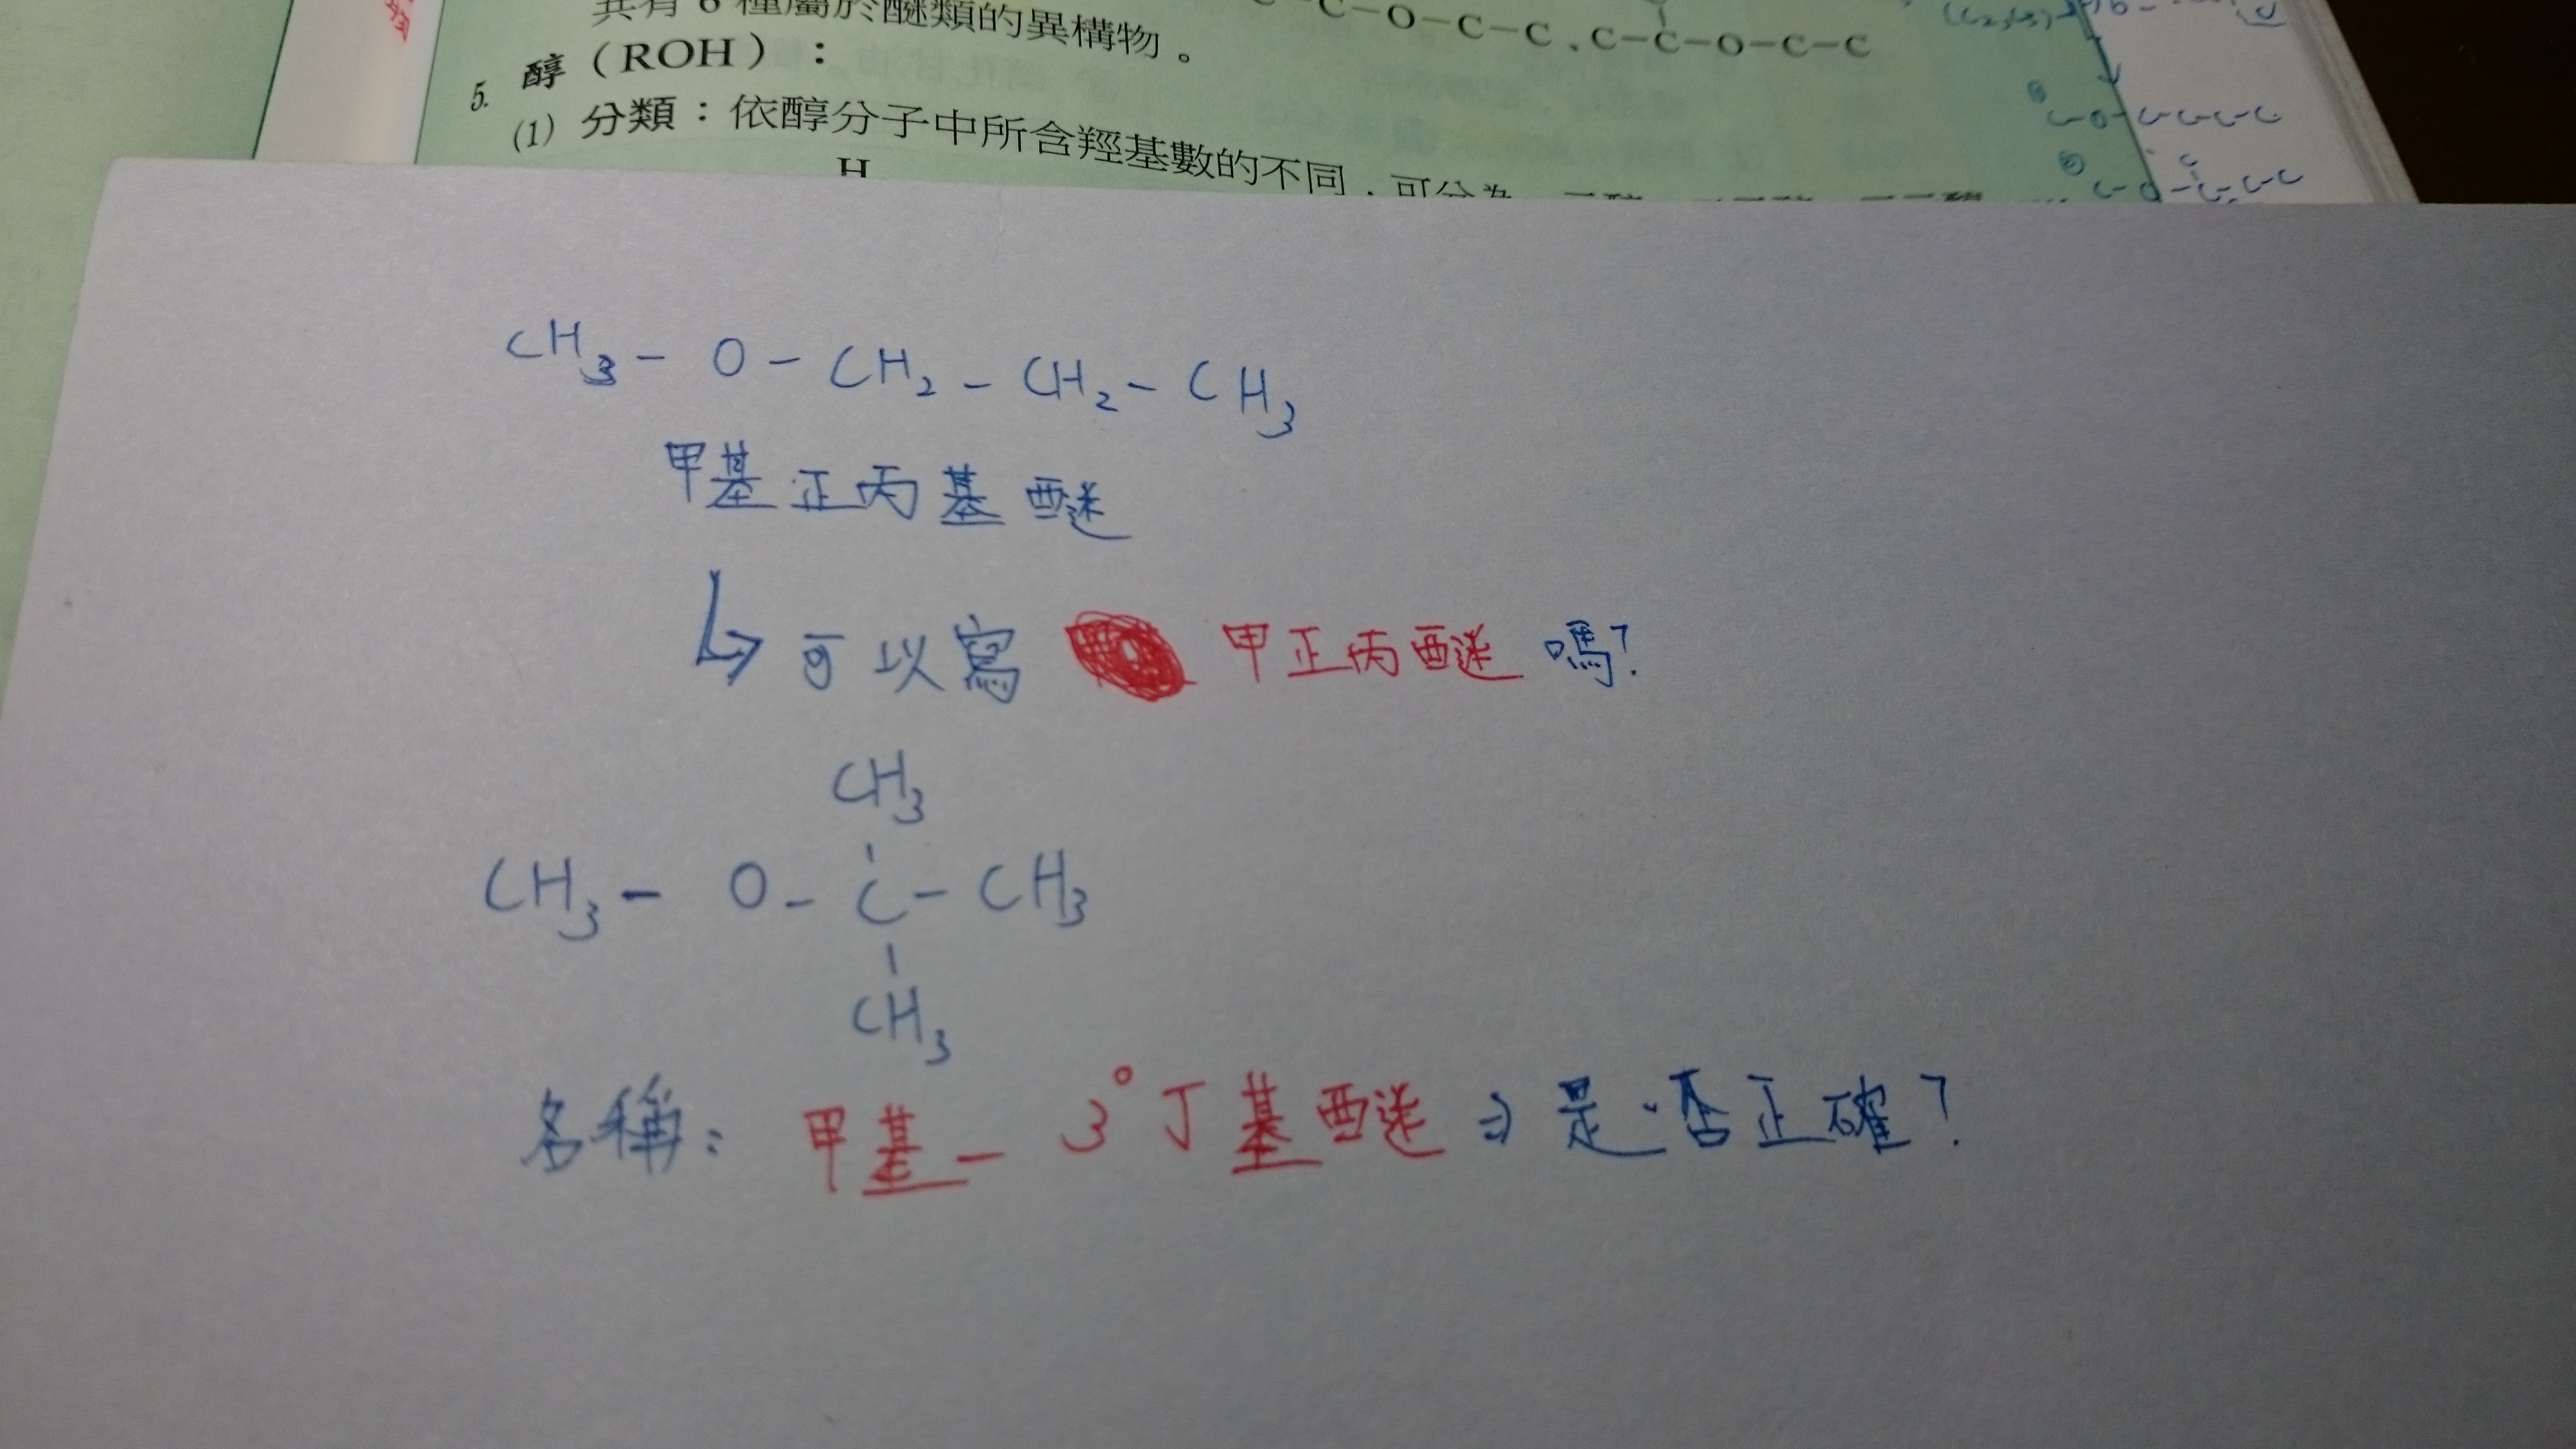 共有6種屬於醚類的異構物。
C-C-O-C-C、C-C-O-C-C
5. 醇（ROH）：
(1) 分類：依醇分子中所含羥基數的不同，可分為
H
C-O-C-C-C-C
CH3 - O - CH2 - CH2 - CH3
甲基正丙基醚
↳ 可以寫 甲正丙醚 嗎？
CH3
CH3 - O - C - CH3
CH3
名稱： 甲基 - 3° 丁基醚 ⇒ 是否正確？